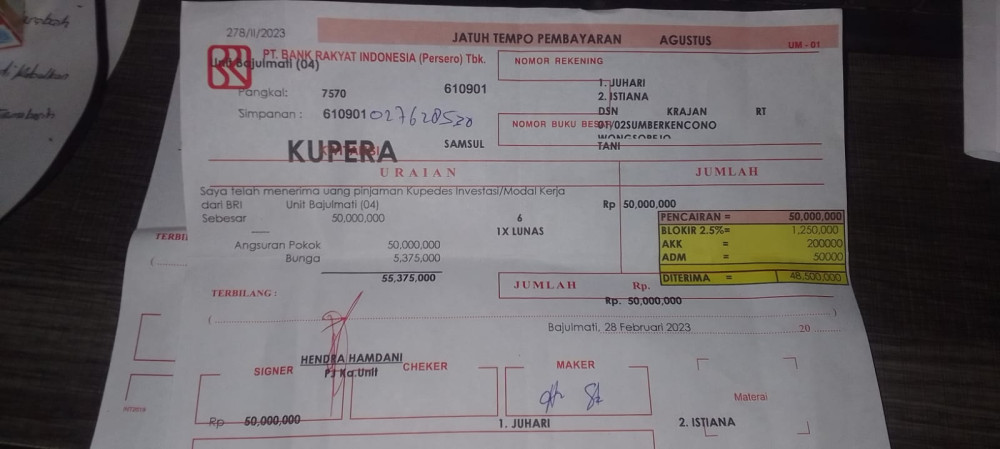 278/II/2023
JATUH TEMPO PEMBAYARAN AGUSTUS
UM - 01
PT. BANK RAKYAT INDONESIA (Persero) Tbk.
Unit Bajulmati (04)
NOMOR REKENING
Pangkal: 7570 610901
1. JUHARI
2. ISTIANA
Simpanan : 610901 027628520
DSN KRAJAN RT
NOMOR BUKU
01/02SUMBERKENCONO
WONGSOREJO
KUPERA
SAMSUL
TANI
URAIAN
JUMLAH
Saya telah menerima uang pinjaman Kupedes Investasi/Modal Kerja
dari BRI Unit Bajulmati (04)
Rp 50,000,000
Sebesar 50,000,000 6
1X LUNAS
PENCAIRAN = 50,000,000
BLOKIR 2.5%= 1,250,000
AKK = 200000
ADM = 50000
DITERIMA = 48,500,000
Angsuran Pokok 50,000,000
Bunga 5,375,000
55,375,000
JUMLAH Rp.
Rp. 50,000,000
TERBILANG :
Bajulmati, 28 Februari 2023
20
HENDRA HAMDANI
PJ Ka.Unit
SIGNER
CHEKER
MAKER
Materai
Rp 50,000,000
1. JUHARI
2. ISTIANA